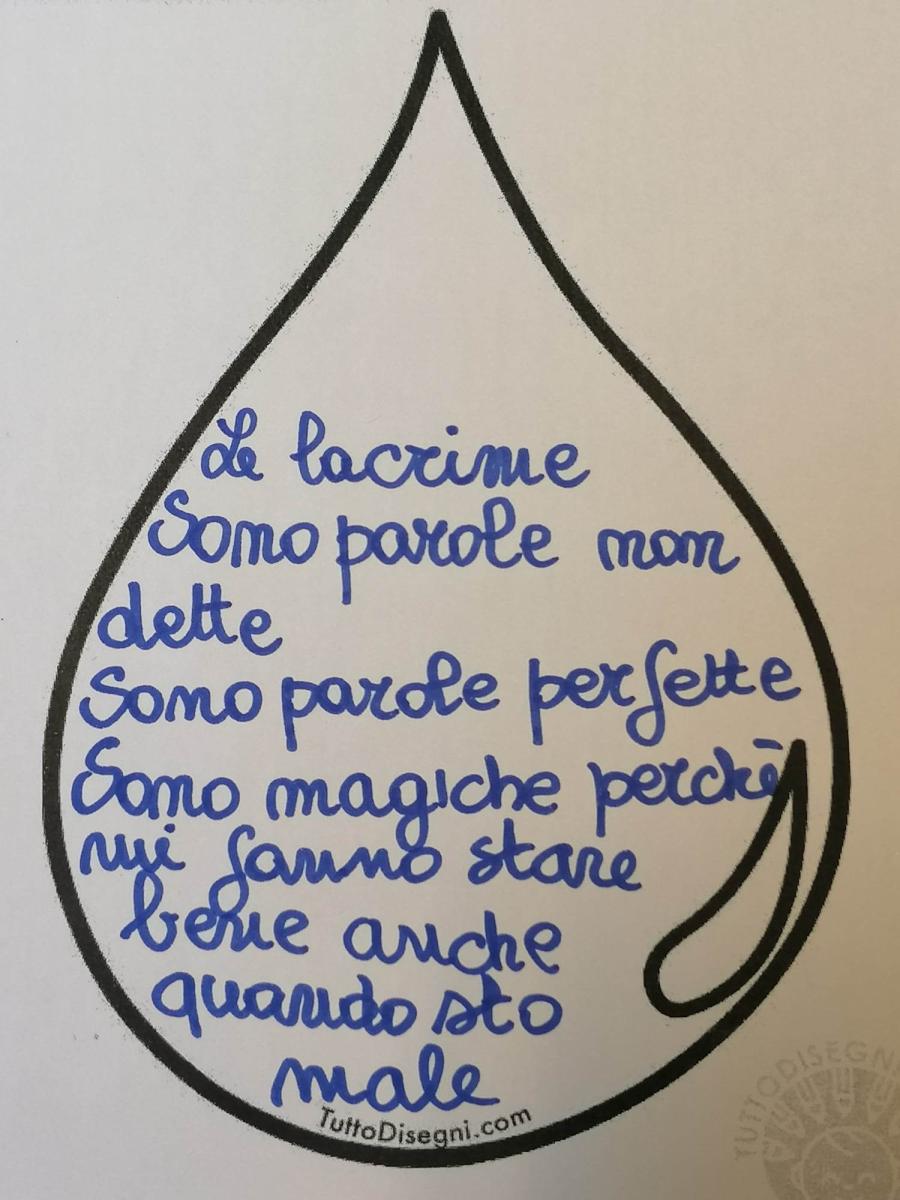 Le lacrime
Sono parole non
dette
Sono parole perfette
Sono magiche perchè
mi fanno stare
bene anche
quando sto
male
TuttoDisegni.com
TUTTODISEGNI